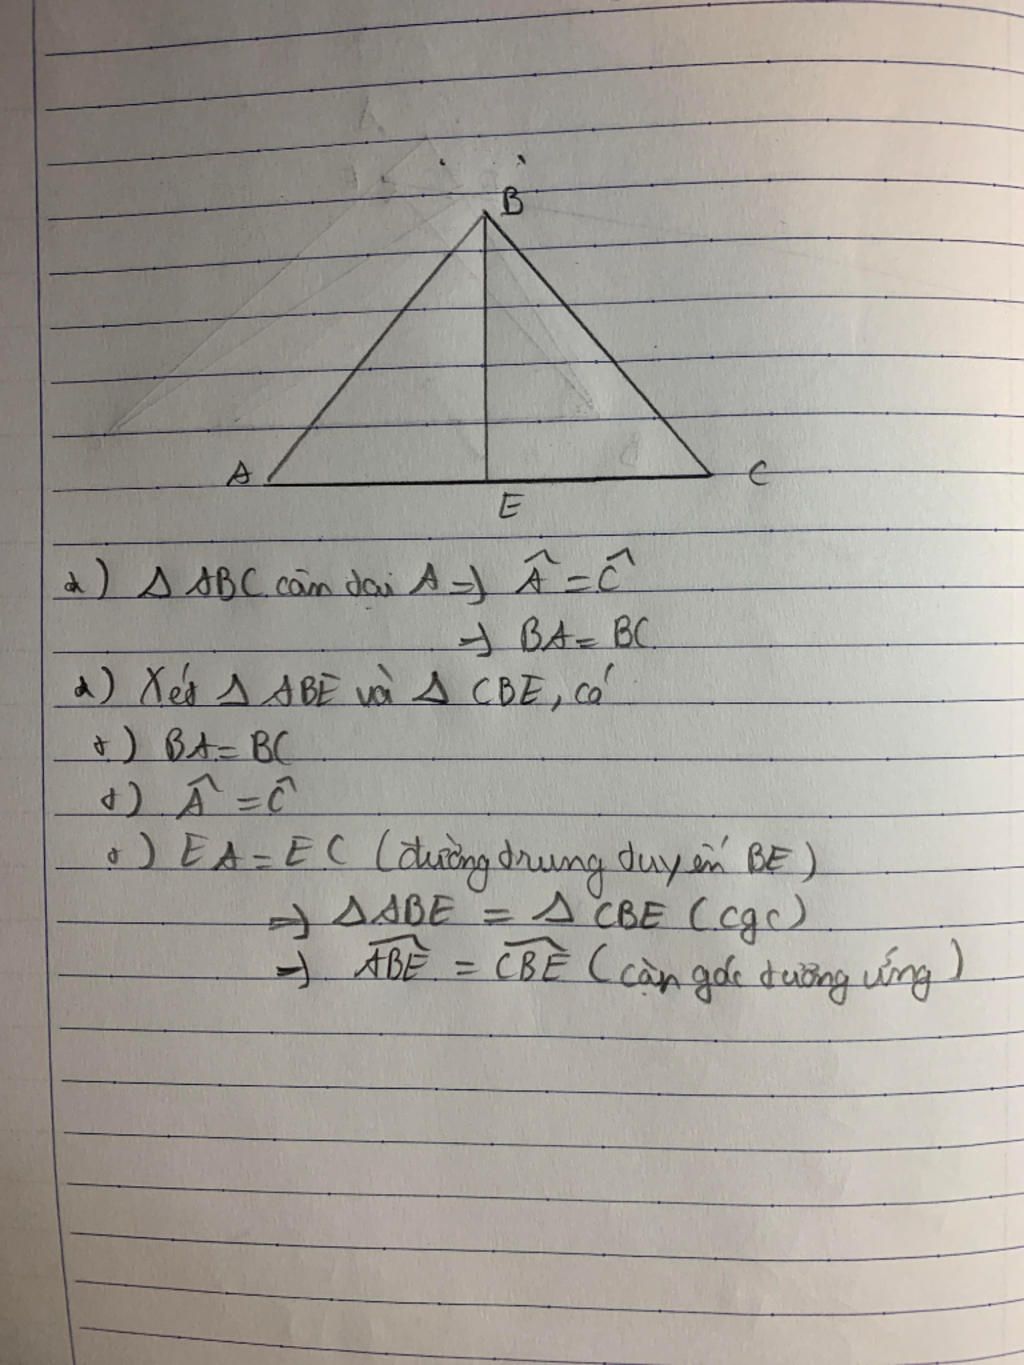 B
A
C
E
*) Δ ABC cân tại A => Â = Ĉ
=> BA = BC
*) Xét Δ ABE và Δ CBE, có
+) BA = BC
+) Â = Ĉ
+) EA = EC (đường trung tuyến BE)
=> ΔABE = Δ CBE (cgc)
=> ABE = CBE (cặn góc tương ứng)